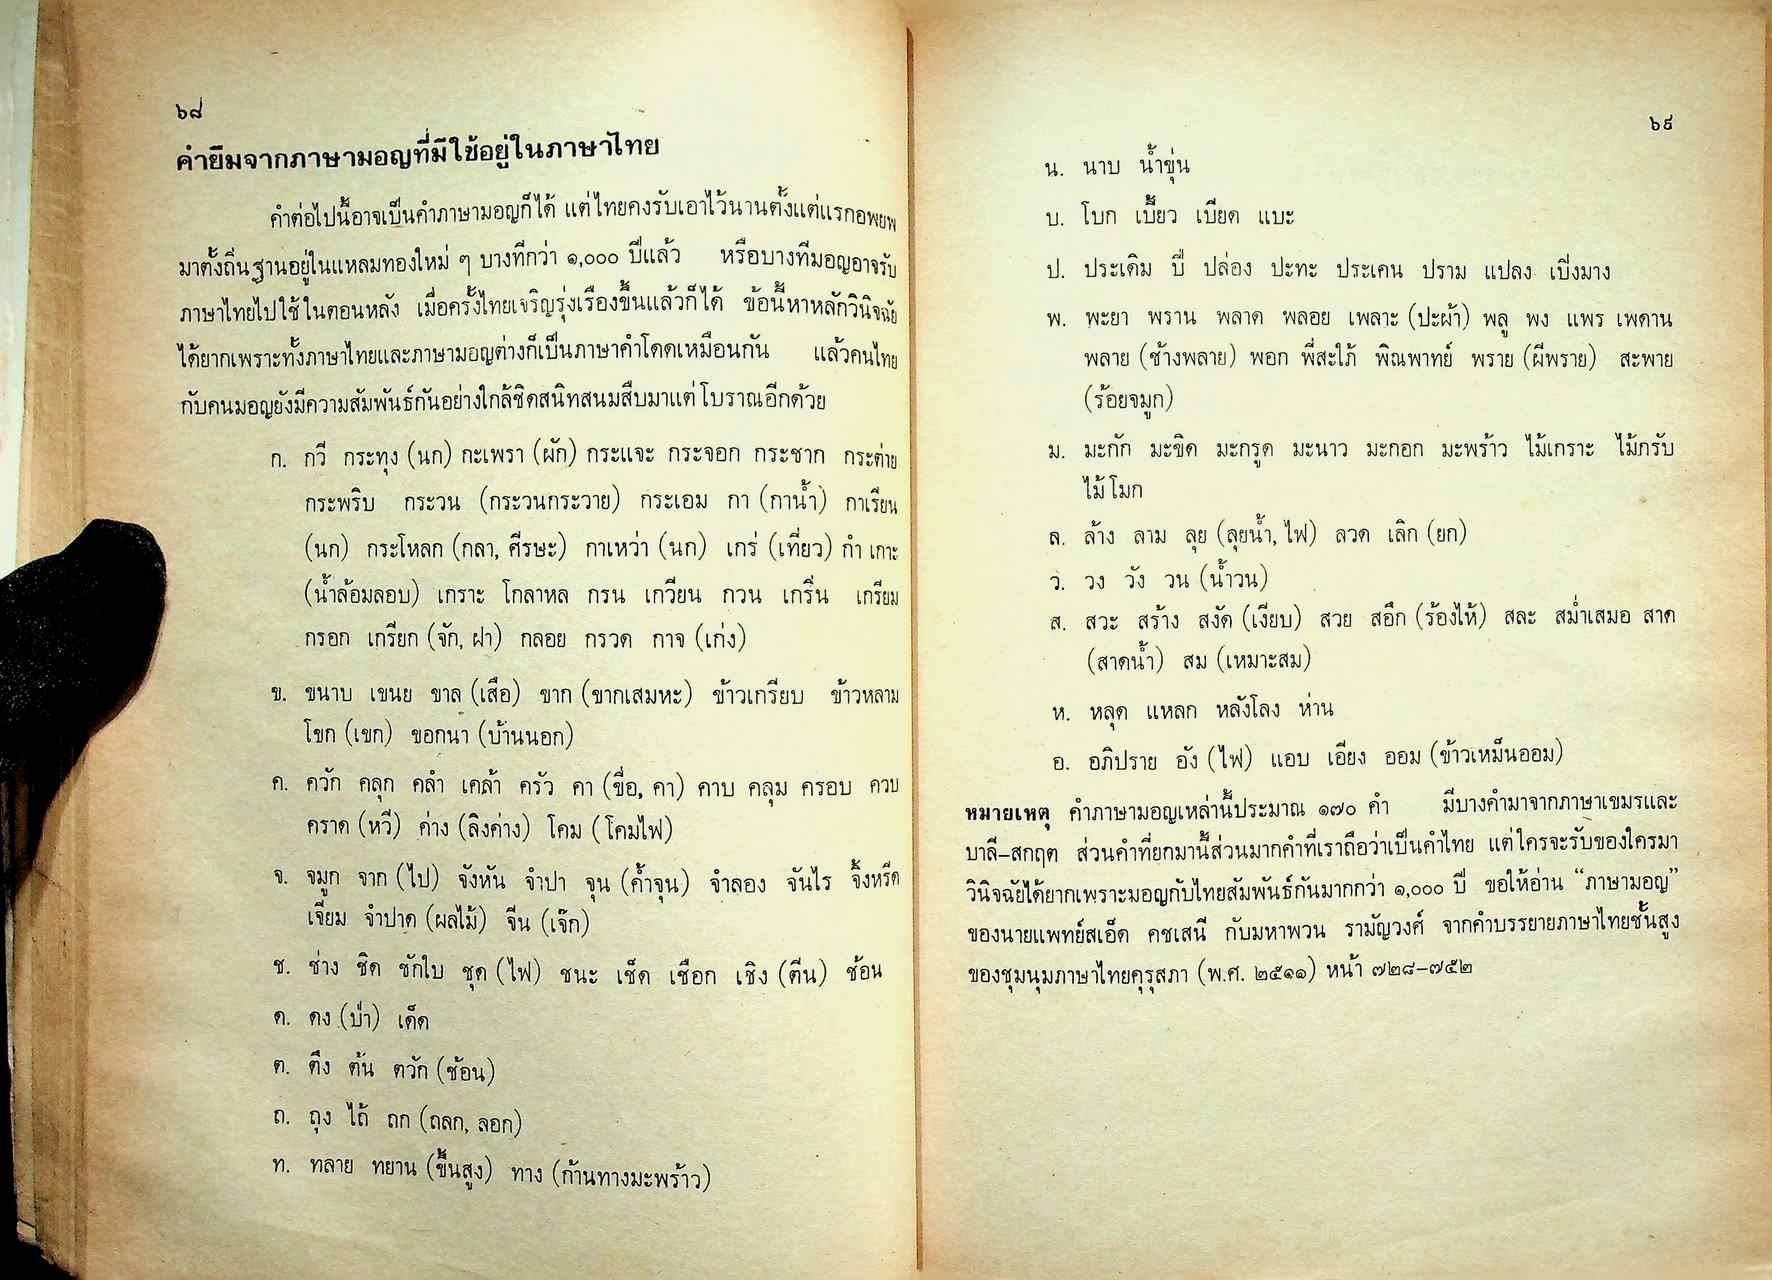 ๖๘
คำยืมจากภาษามอญที่มีใช้อยู่ในภาษาไทย
คำต่อไปนี้อาจเป็นคำภาษามอญก็ได้ แต่ไทยคงรับเอาไว้นานตั้งแต่แรกอพยพ
มาตั้งถิ่นฐานอยู่ในแหลมทองใหม่ ๆ บางทีกว่า ๑,๐๐๐ ปีแล้ว หรือบางทีมอญอาจรับ
ภาษาไทยไปใช้ในตอนหลัง เมื่อครั้งไทยเจริญรุ่งเรืองขึ้นแล้วก็ได้ ข้อนี้หาหลักวินิจฉัย
ได้ยากเพราะทั้งภาษาไทยและภาษามอญต่างก็เป็นภาษาคำโดดเหมือนกัน แล้วคนไทย
กับคนมอญยังมีความสัมพันธ์กันอย่างใกล้ชิดสนิทสนมสืบมาแต่โบราณอีกด้วย
ก. กวี กระทุง (นก) กะเพรา (ผัก) กระแจะ กระจอก กระชาก กระต่าย
กระพริบ กระวน (กระวนกระวาย) กระเอม กา (กาน้ำ) กาเรียน
(นก) กระโหลก (กลา, ศีรษะ) กาเหว่า (นก) เกร่ (เที่ยว) กำ เกาะ
(น้ำล้อมลอบ) เกราะ โกลาหล กรน เกวียน กวน เกริ่น เกรียม
กรอก เกรียก (จัก, ฝา) กลอย กรวด กาจ (เก่ง)
ข. ขนาบ เขนย ขาล (เสือ) ขาก (ขากเสมหะ) ข้าวเกรียบ ข้าวหลาม
โขก (เขก) ขอกนา (บ้านนอก)
ค. ควัก คลุก คลำ เคล้า ครัว คา (ขื่อ, คา) คาบ คลุม ครอบ ควบ
คราด (หวี) ค่าง (ลิงค่าง) โคม (โคมไฟ)
จ. จมูก จาก (ไป) จังหัน จำปา จุน (ค้ำจุน) จำลอง จันไร จิ้งหรีด
เจี๋ยม จำปาด (ผลไม้) จีน (เจ๊ก)
ช. ช่าง ชิด ชักใบ ชุด (ไฟ) ชนะ เช็ด เชือก เชิง (ตีน) ช้อน
ด. ดง (ป่า) เด็ด
ต. ตึง ต้น ตวัก (ช้อน)
ถ. ถุง ไถ้ ถก (ถลก, ลอก)
ท. ทลาย ทยาน (ขึ้นสูง) ทาง (ก้านทางมะพร้าว)
๖๙
น. นาบ น้ำขุ่น
บ. โบก เบี้ยว เบียด แบะ
ป. ประเดิม ปี่ ปล่อง ปะทะ ประเคน ปราม แปลง เปิงมาง
พ. พะยา พราน พลาด พลอย เพลาะ (ปะผ้า) พลู พง แพร เพดาน
พลาย (ช้างพลาย) พอก พี่สะใภ้ พิณพาทย์ พราย (ผีพราย) สะพาย
(ร้อยจมูก)
ม. มะกัก มะขิด มะกรูด มะนาว มะกอก มะพร้าว ไม้เกราะ ไม้กรับ
ไม้โมก
ล. ล้าง ลาม ลุย (ลุยน้ำ, ไฟ) ลวด เลิก (ยก)
ว. วง วัง วน (น้ำวน)
ส. สวะ สร้าง สงัด (เงียบ) สวย สอึก (ร้องไห้) สละ สม่ำเสมอ สาด
(สาดน้ำ) สม (เหมาะสม)
ห. หลุด แหลก หลังโลง ห่าน
อ. อภิปราย อัง (ไฟ) แอบ เอียง ออม (ข้าวเหม็นออม)
หมายเหตุ คำภาษามอญเหล่านี้ประมาณ ๑๗๐ คำ มีบางคำมาจากภาษาเขมรและ
บาลี–สกฤต ส่วนคำที่ยกมานี้ส่วนมากคำที่เราถือว่าเป็นคำไทย แต่ใครจะรับของใครมา
วินิจฉัยได้ยากเพราะมอญกับไทยสัมพันธ์กันมากกว่า ๑,๐๐๐ ปี ขอให้อ่าน “ภาษามอญ”
ของนายแพทย์สเอ็ด คชเสนี กับมหาพวน รามัญวงศ์ จากคำบรรยายภาษาไทยชั้นสูง
ของชุมนุมภาษาไทยคุรุสภา (พ.ศ. ๒๕๑๑) หน้า ๗๒๘–๗๕๒